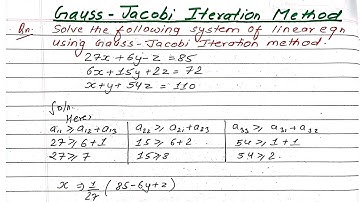 Gauss-Jacobi Iteration Method
Qn. Solve the following system of linear eqn
using Gauss-Jacobi Iteration method.
27x + 6y - z = 85
6x + 15y + 2z = 72
x + y + 54z = 110
Soln.
Here,
a₁₁ ≥ a₁₂ + a₁₃ | a₂₂ ≥ a₂₁ + a₂₃ | a₃₃ ≥ a₃₁ + a₃₂
27 ≥ 6+1 | 15 ≥ 6+2 | 54 ≥ 1+1
27 ≥ 7 | 15 ≥ 8 | 54 ≥ 2
x ⇒ 1/27 (85 - 6y + z)